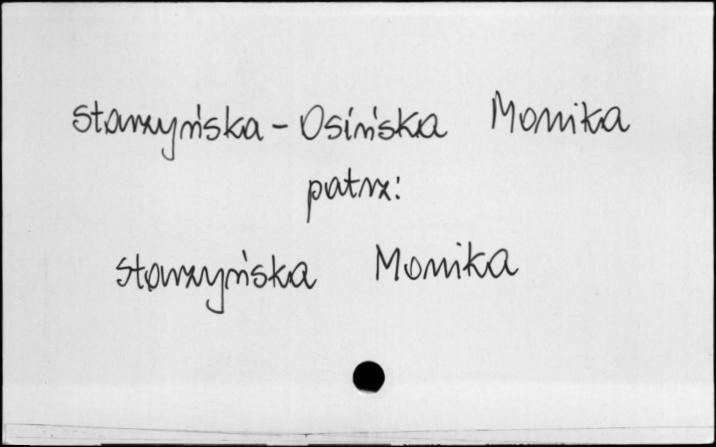 Starzyńska - Osińska Monika
patrz:
Starzyńska Monika